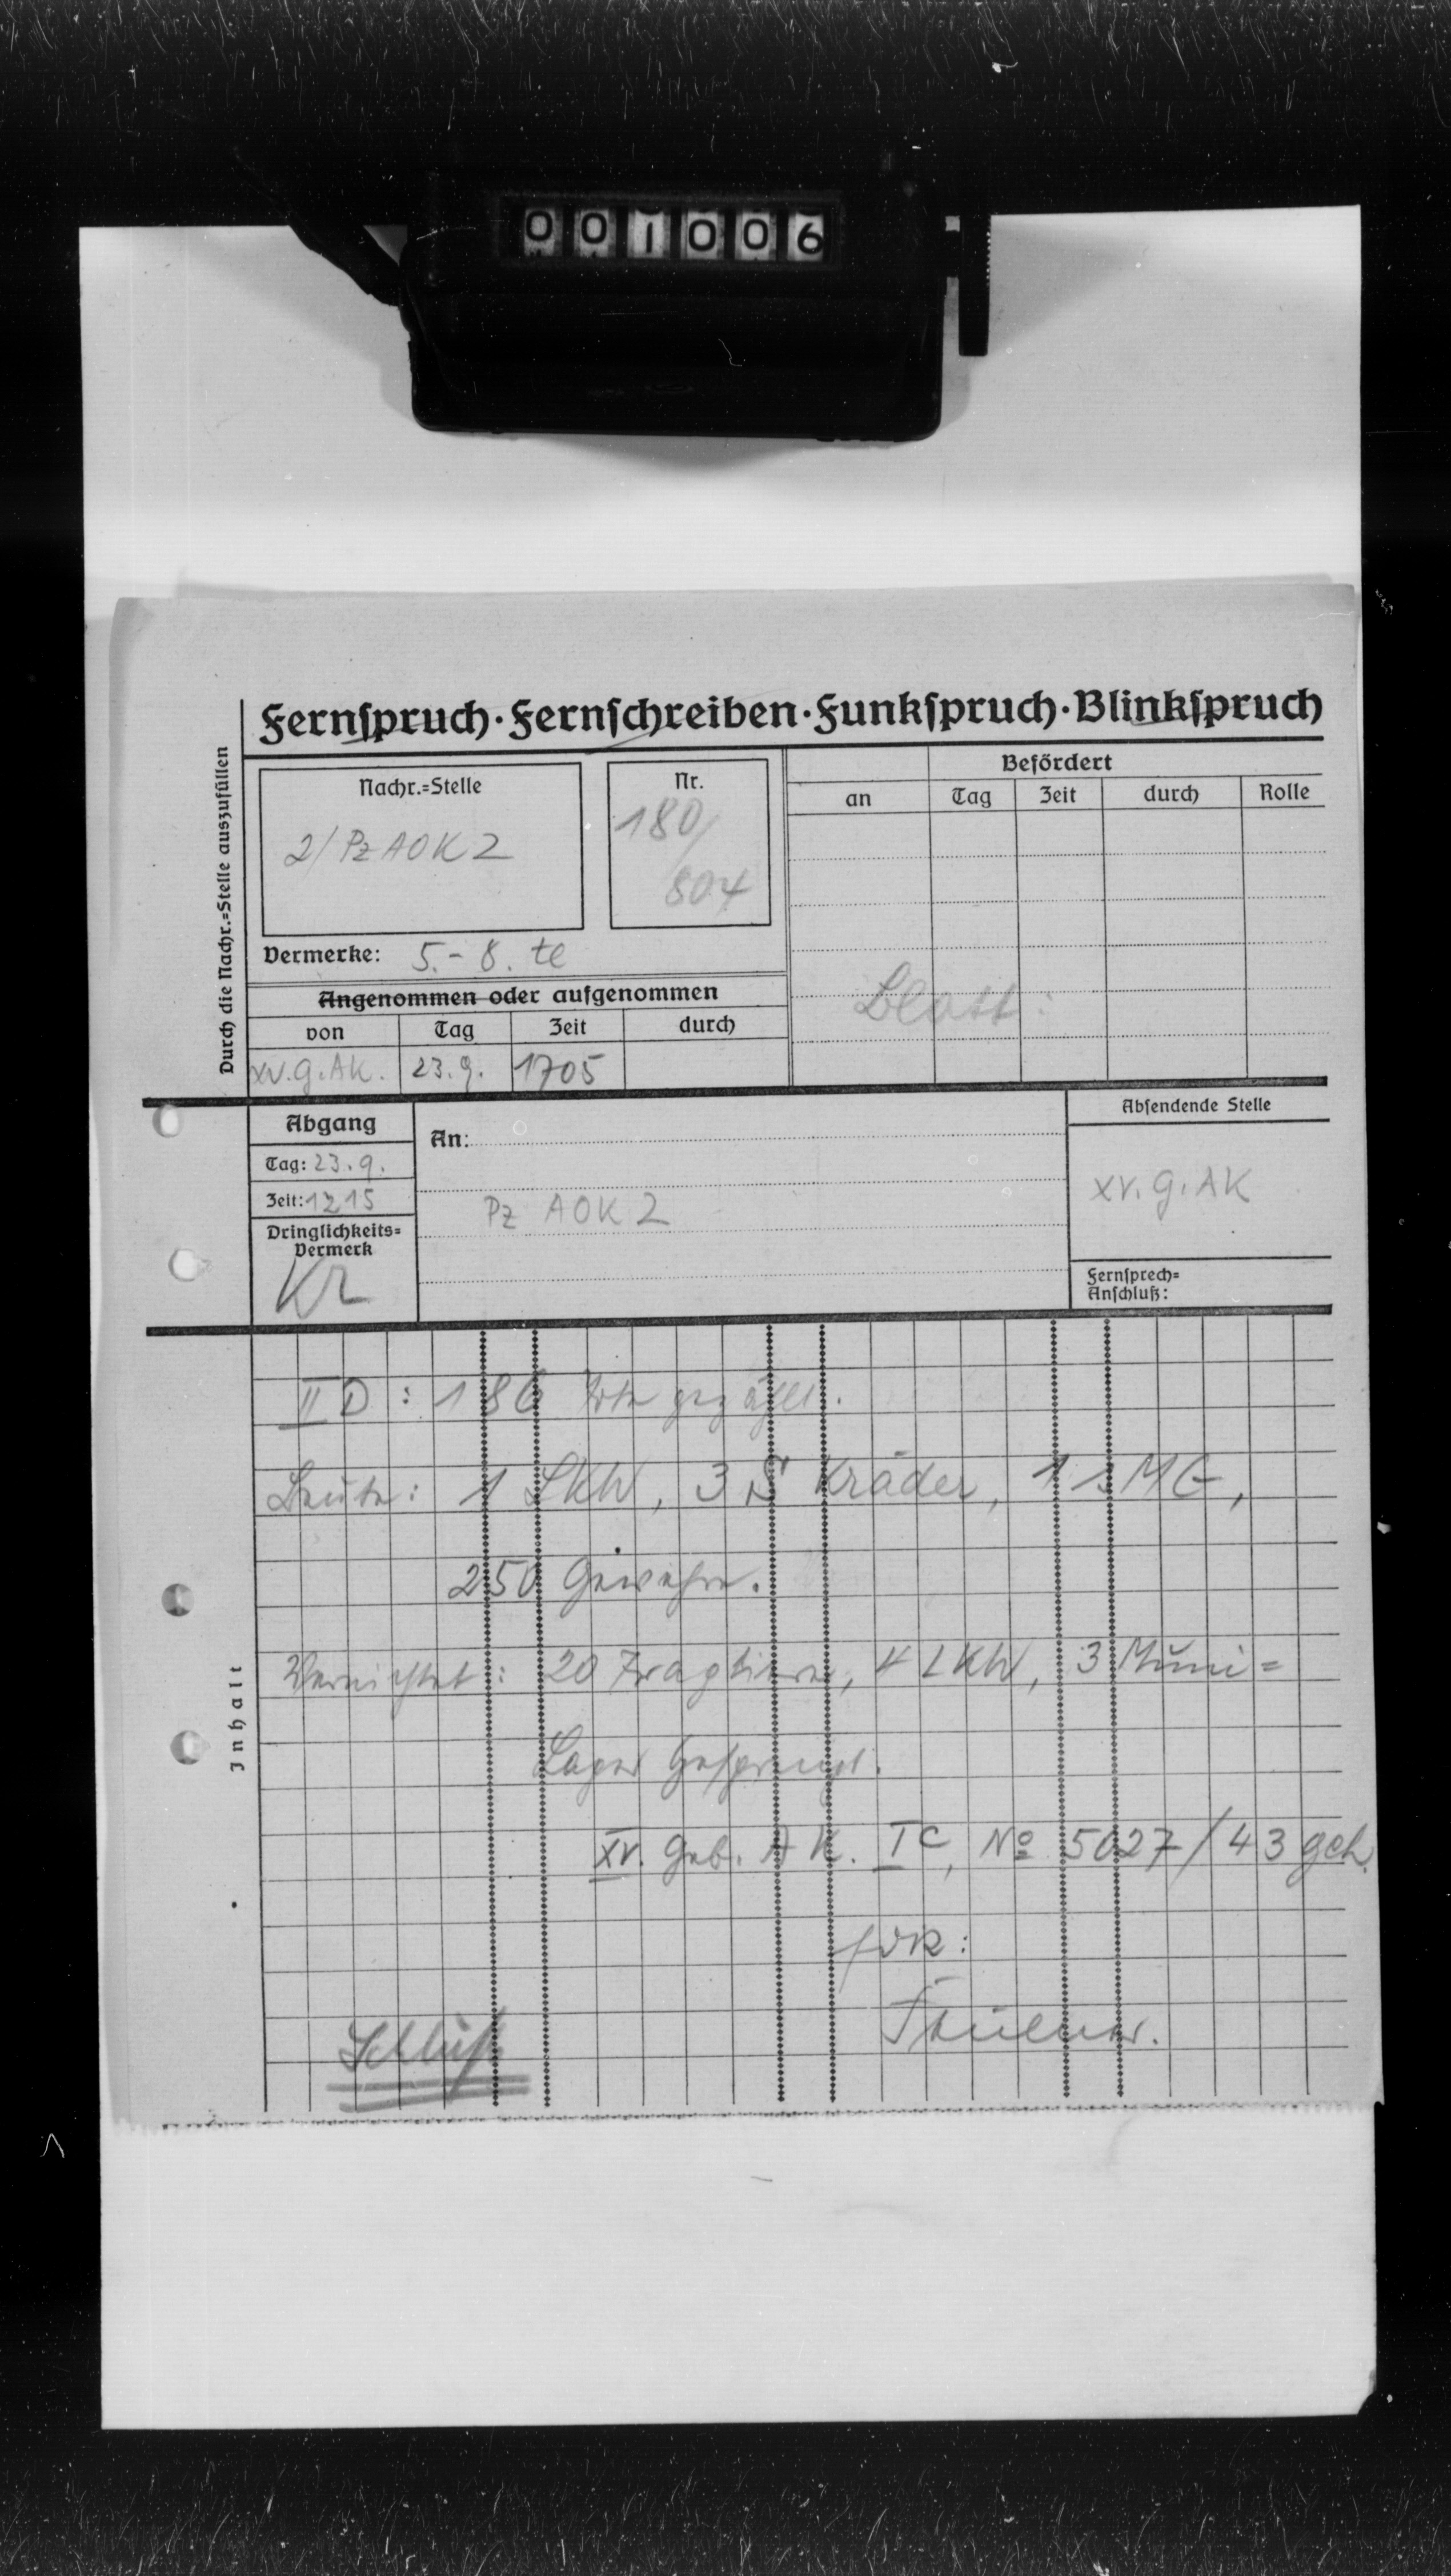 001006
Fernspruch · Fernschreiben · Funkspruch · Blinkspruch
Durch die Nachr.=Stelle auszufüllen
Nachr.=Stelle
2/ Pz AOK 2
Nr.
180/
804
Befördert
an Tag Zeit durch Rolle
Vermerke: 5.- 8. te
Angenommen oder aufgenommen
von Tag Zeit durch
XV.G.AK. 23.9. 1705
Abgang
Tag: 23.9.
Zeit: 1215
Dringlichkeits=
Vermerk
KR
An:
Pz AOK 2
Absendende Stelle
XV.G.AK
Fernsprech=
Anschluß:
Inhalt
II D : 186 Tote gezählt.
Beute: 1 LKW, 3 S Kräder, 1 s MG,
250 Gewehre.
Vernichtet: 20 Tragtiere, 4 LKW, 3 Muni=
Lager gesprengt.
XV. Geb. A K. IC, No 5027/43 geh.
fdR:
Schluß